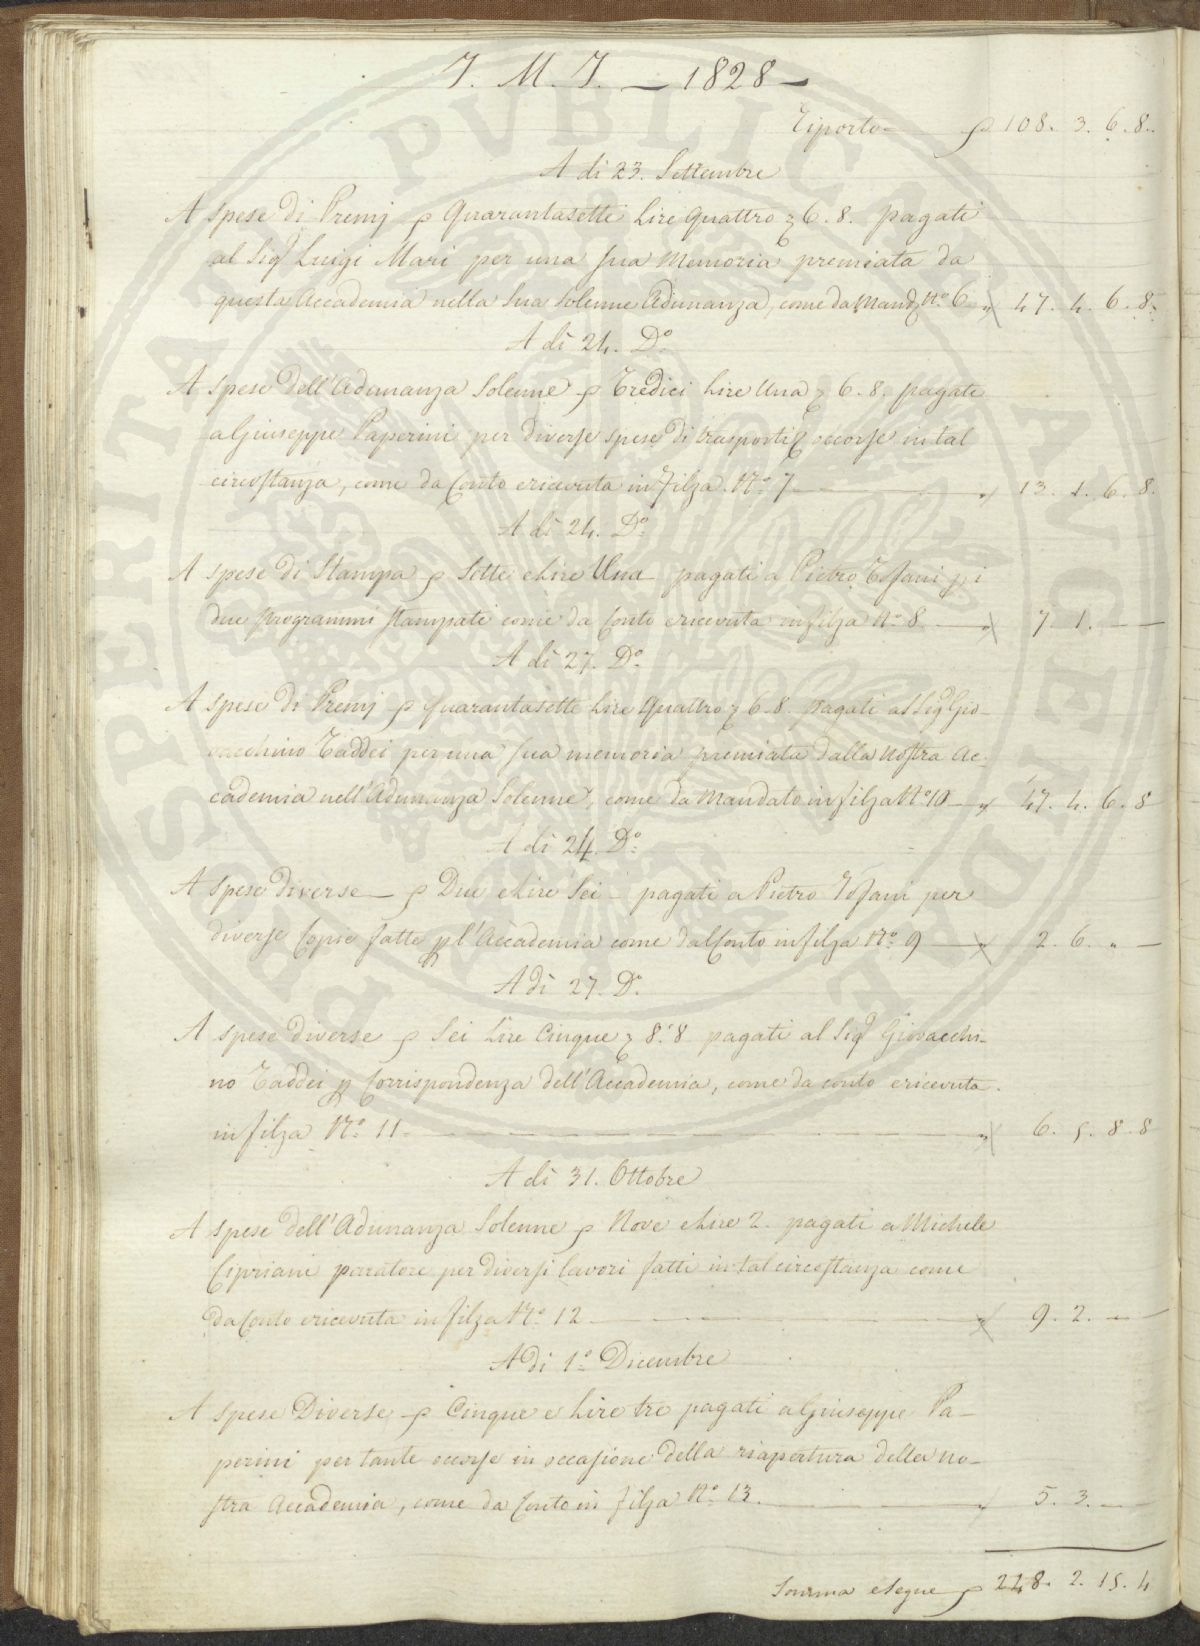 J. M. J. — 1828 —
Riporto — 108. 3. 6. 8.
A dì 23. Settembre
A spese di Premj p Quarantasette Lire quattro 6. 8. pagati
al Sig Luigi Mari per una sua Memoria premiata da
questa Accademia nella sua Solenne Adunanza, come da Mand N.o 6 " 47. 4. 6. 8.
A dì 24. D.o
A spese dell'Adunanza Solenne p Tredici Lire Una 6. 8. pagate
a Giuseppe Paperini per diverse spese di trasporti occorse in tal
circostanza, come da Conto e ricevuta in Filza N.o 7 — " 13. 1. 6. 8.
A dì 24. D.o
A spese di Stampa p Sette e Lire Una pagati a Pietro Tofani p i
due Programmi stampati come da Conto e ricevuta in filza N.o 8 — " 7. 1. —
A dì 27. D.o
A spese di Premj p quarantasette Lire Quattro 6. 8. pagati al Sig Gio-
vacchino Taddei per una sua memoria premiata dalla nostra Ac-
cademia nell'Adunanza Solenne, come da Mandato in filza N.o 10 — " 47. 4. 6. 8
A dì 24. D.o
A Spese diverse — p Due e Lire Sei — pagati a Pietro Tofani per
diverse Copie fatte p l'Accademia come dal Conto in filza N.o 9 — " 2. 6. " —
A dì 27. D.o
A spese diverse p Sei Lire Cinque 8. 8 pagati al Sig Giovacchi-
no Taddei p Corrispondenza dell'Accademia, come da conto e ricevuta
in filza N.o 11 — " 6. 5. 8. 8
A dì 31. Ottobre
A spese dell'Adunanza Solenne p Nove e Lire 2. pagati a Michele
Cipriani paratore per diversi lavori fatti in tal circostanza come
da Conto e ricevuta in filza N.o 12 — " 9. 2. —
A dì 1.o Dicembre
A spese Diverse p Cinque e Lire tre pagati a Giuseppe Pa-
perini per tante occorse in occasione della riapertura della no-
stra Accademia, come da Conto in filza N.o 13. — " 5. 3. —
Somma e segue p 248. 2. 15. 4
PERITAT PVBLICA AVGENDAE